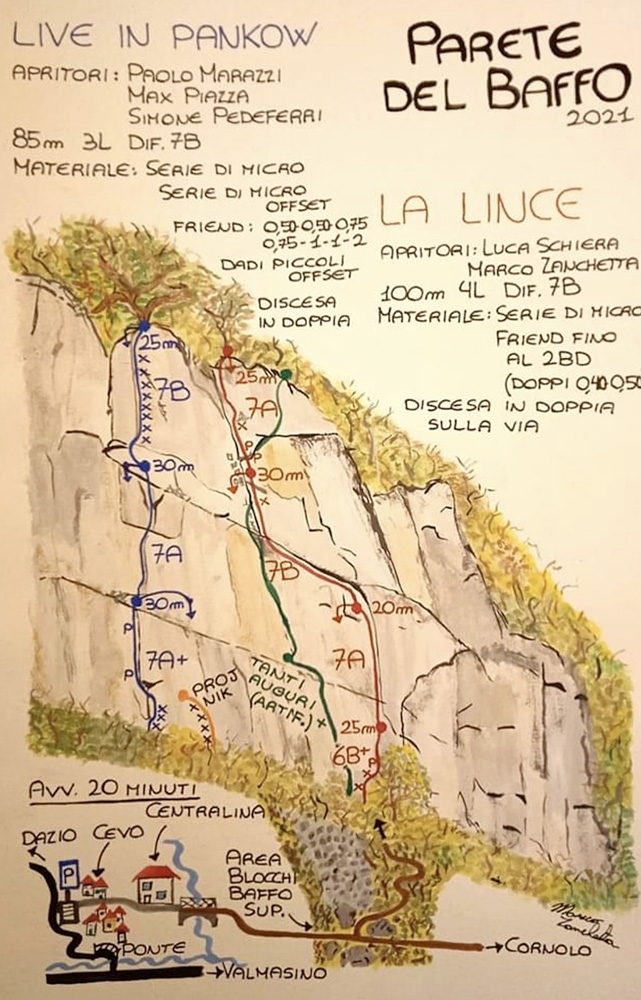 LIVE IN PANKOW
APRITORI: PAOLO MARAZZI
MAX PIAZZA
SIMONE PEDEFERRI
85m 3L DIF. 7B
MATERIALE: SERIE DI MICRO
SERIE DI MICRO
OFFSET
FRIEND: 0,50-0,50-0,75
0,75-1-1-2
DADI PICCOLI
OFFSET
DISCESA
IN DOPPIA
PARETE
DEL BAFFO
2021
LA LINCE
APRITORI: LUCA SCHIERA
MARCO ZANCHETTA
100m 4L DIF. 7B
MATERIALE: SERIE DI MICRO
FRIEND FINO
AL 2BD
(DOPPI 0,40-0,50
DISCESA IN DOPPIA
SULLA VIA
25m
7B
25m
7A
P
P
30m
30m
7A
7B
30m
20m
P
7A+
7A
P
PROJ
NIK
TANTI
AUGURI
(ARTIF.)
25m
6B+
P
AVV. 20 MINUTI
CENTRALINA
DAZIO CEVO
P
AREA
BLOCCHI
BAFFO
SUP.
PONTE
VALMASINO
CORNOLO
Marco
Zanchetta